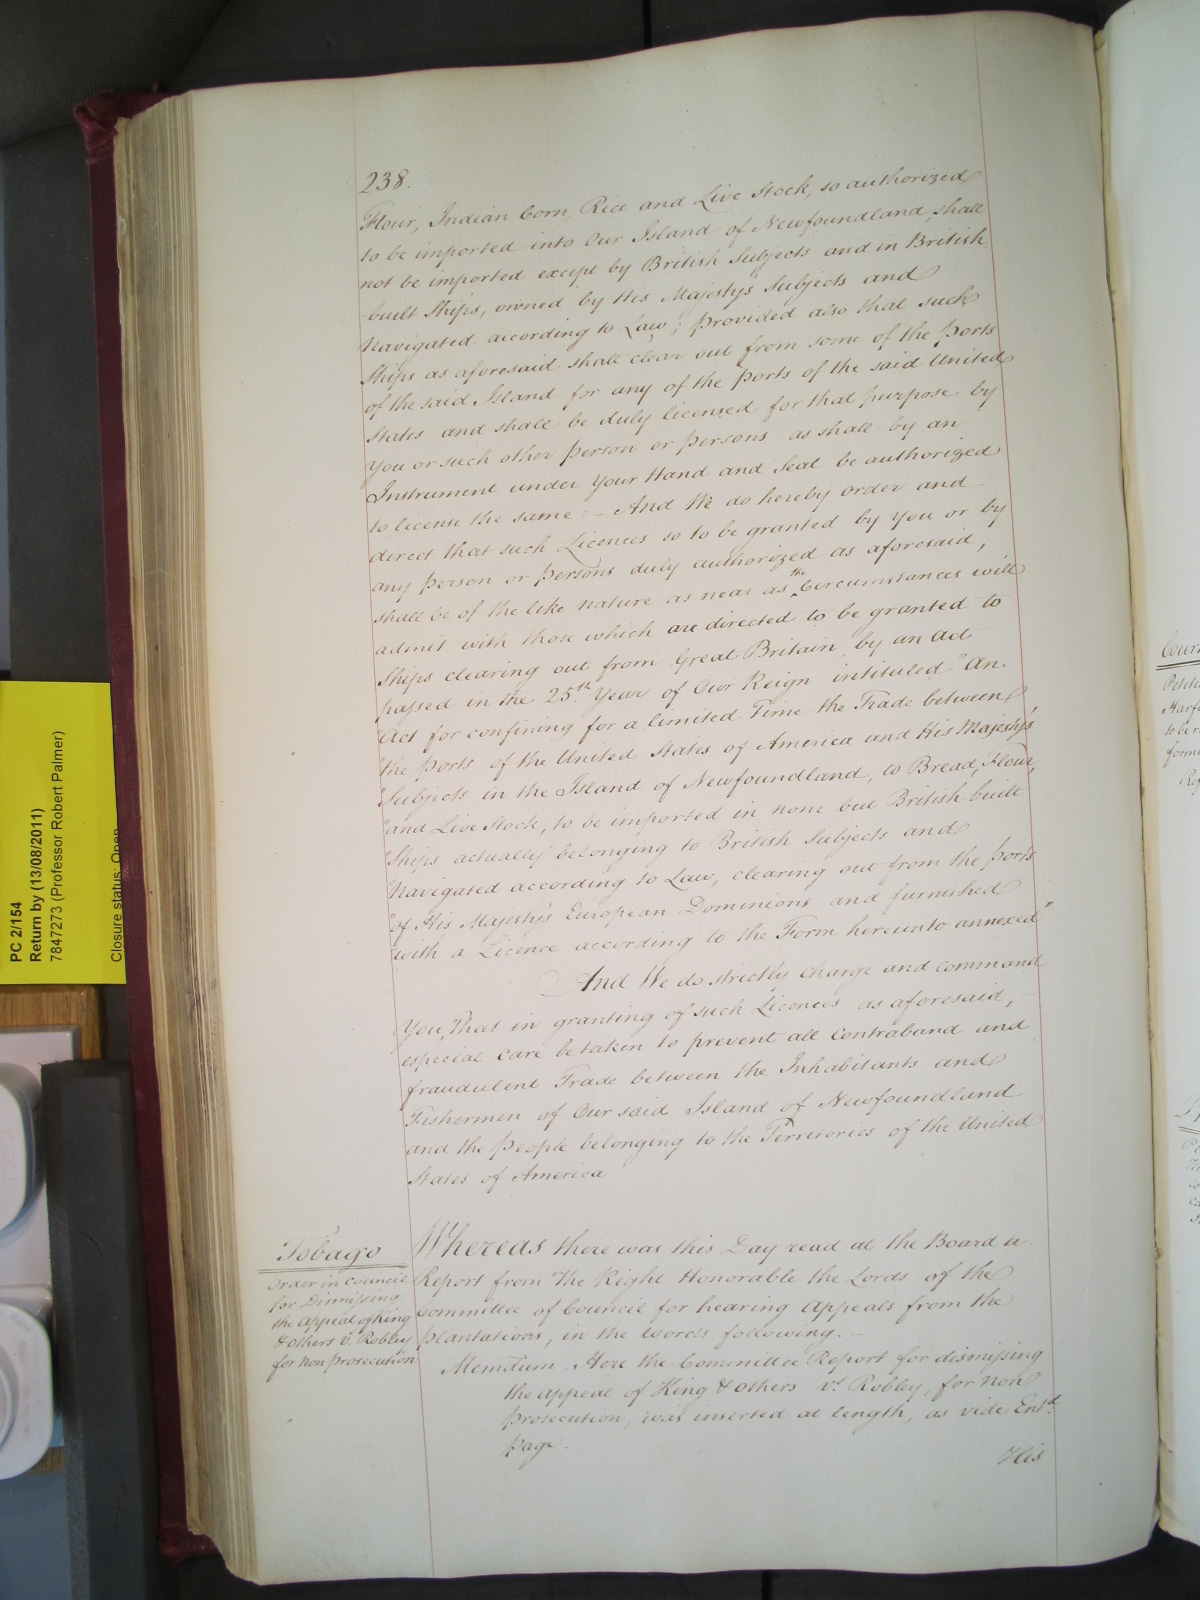 238.
Flour, Indian Corn, Rice and Live Stock, so authorized
to be imported into Our Island of Newfoundland, shall
not be imported except by British Subjects and in British
-built Ships, owned by His Majesty's Subjects and
Navigated according to Law; provided also that such
Ships as aforesaid shall clear out from some of the Ports
of the said Island for any of the Ports of the said United
States and shall be duly licensed for that purpose by
You or such other Person or Persons as shall by an
Instrument under Your Hand and Seal be authorized
to license the same:- And We do hereby order and
direct that such Licences so to be granted by You or by
any Person or Persons duly authorized as aforesaid,
shall be of the like nature as near as the Circumstances will
admit with those which are directed to be granted to
Ships clearing out from Great Britain, by an Act
passed in the 25th Year of Our Reign intituled "An
"Act for confining for a limited Time the Trade between
"the Ports of the United States of America and His Majesty's
"Subjects in the Island of Newfoundland, to Bread, Flour,
"and Live Stock, to be imported in none but British built
"Ships actually belonging to British Subjects and
"Navigated according to Law, clearing out from the Ports
"of His Majesty's European Dominions and furnished
"with a Licence according to the Form hereunto annexed"
And We do strictly charge and command
You, That in granting of such Licences as aforesaid,
especial care be taken to prevent all contraband and
fraudulent Trade between the Inhabitants and
Fishermen of Our said Island of Newfoundland
and the People belonging to the Territories of the United
States of America
Tobago
Order in Council
for Dismissing
the appeal of King
& others v. Robley
for non prosecution
Whereas there was this Day read at the Board a
Report from The Right Honorable the Lords of the
Committee of Council for hearing Appeals from the
Plantations, in the words following.-
Memdum. Here the Committee Report for dismissing
the appeal of King & others vs. Robley, for non
Prosecution, was inserted at length, as vide Entd.
Page.
His
PC 2/154
Return by (13/08/2011)
7847273 (Professor Robert Palmer)
Closure status: Open